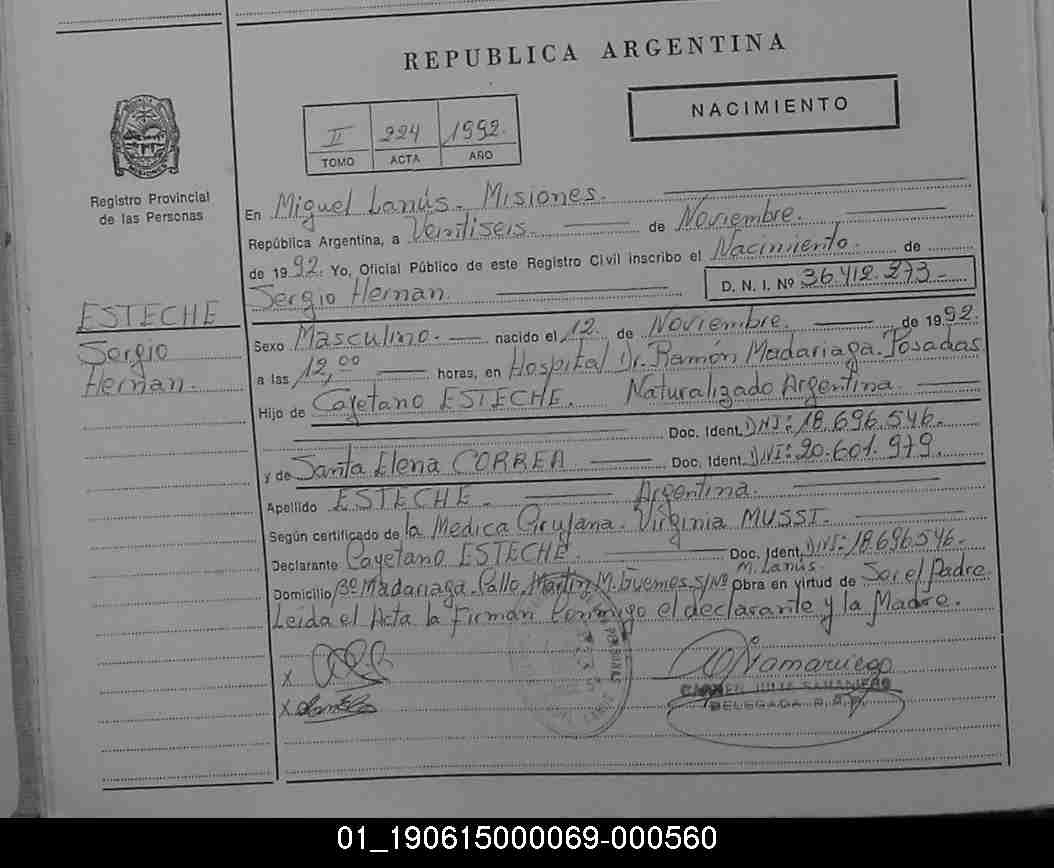 REPUBLICA ARGENTINA
NACIMIENTO
II 224 1992.
TOMO ACTA AÑO
Registro Provincial
de las Personas
En Miguel Lanús. Misiones.
República Argentina, a Veintiseis. de Noviembre.
de 1992. Yo, Oficial Público de este Registro Civil inscribo el Nacimiento. de
Sergio Hernan. D. N. I. Nº 36.412.273-
ESTECHE
Sergio
Hernan.
Sexo Masculino. nacido el 12. de Noviembre. de 1992.
a las 12,00 horas, en Hospital Dr. Ramón Madariaga. Posadas
Hijo de Cayetano ESTECHE. Naturalizado Argentina.
Doc. Ident. DNI: 18.696.546.
y de Santa Elena CORREA Doc. Ident. DNI: 20.601.979.
Apellido ESTECHE. Argentina.
Según certificado de la Medica Cirujana. Virginia MUSSI.
Declarante Cayetano ESTECHE. Doc. Ident. DNI: 18.696.546.
M. Lanús.
Domicilio Bº Madariaga. Calle Martin M. Guemes. S/Nº Obra en virtud de Ser el Padre
Leida el Acta la Firman Conmigo el declarante y la Madre.
X
X
CARMEN JULIA SAMANIEGO
DELEGADA R.P.P.
01_190615000069-000560